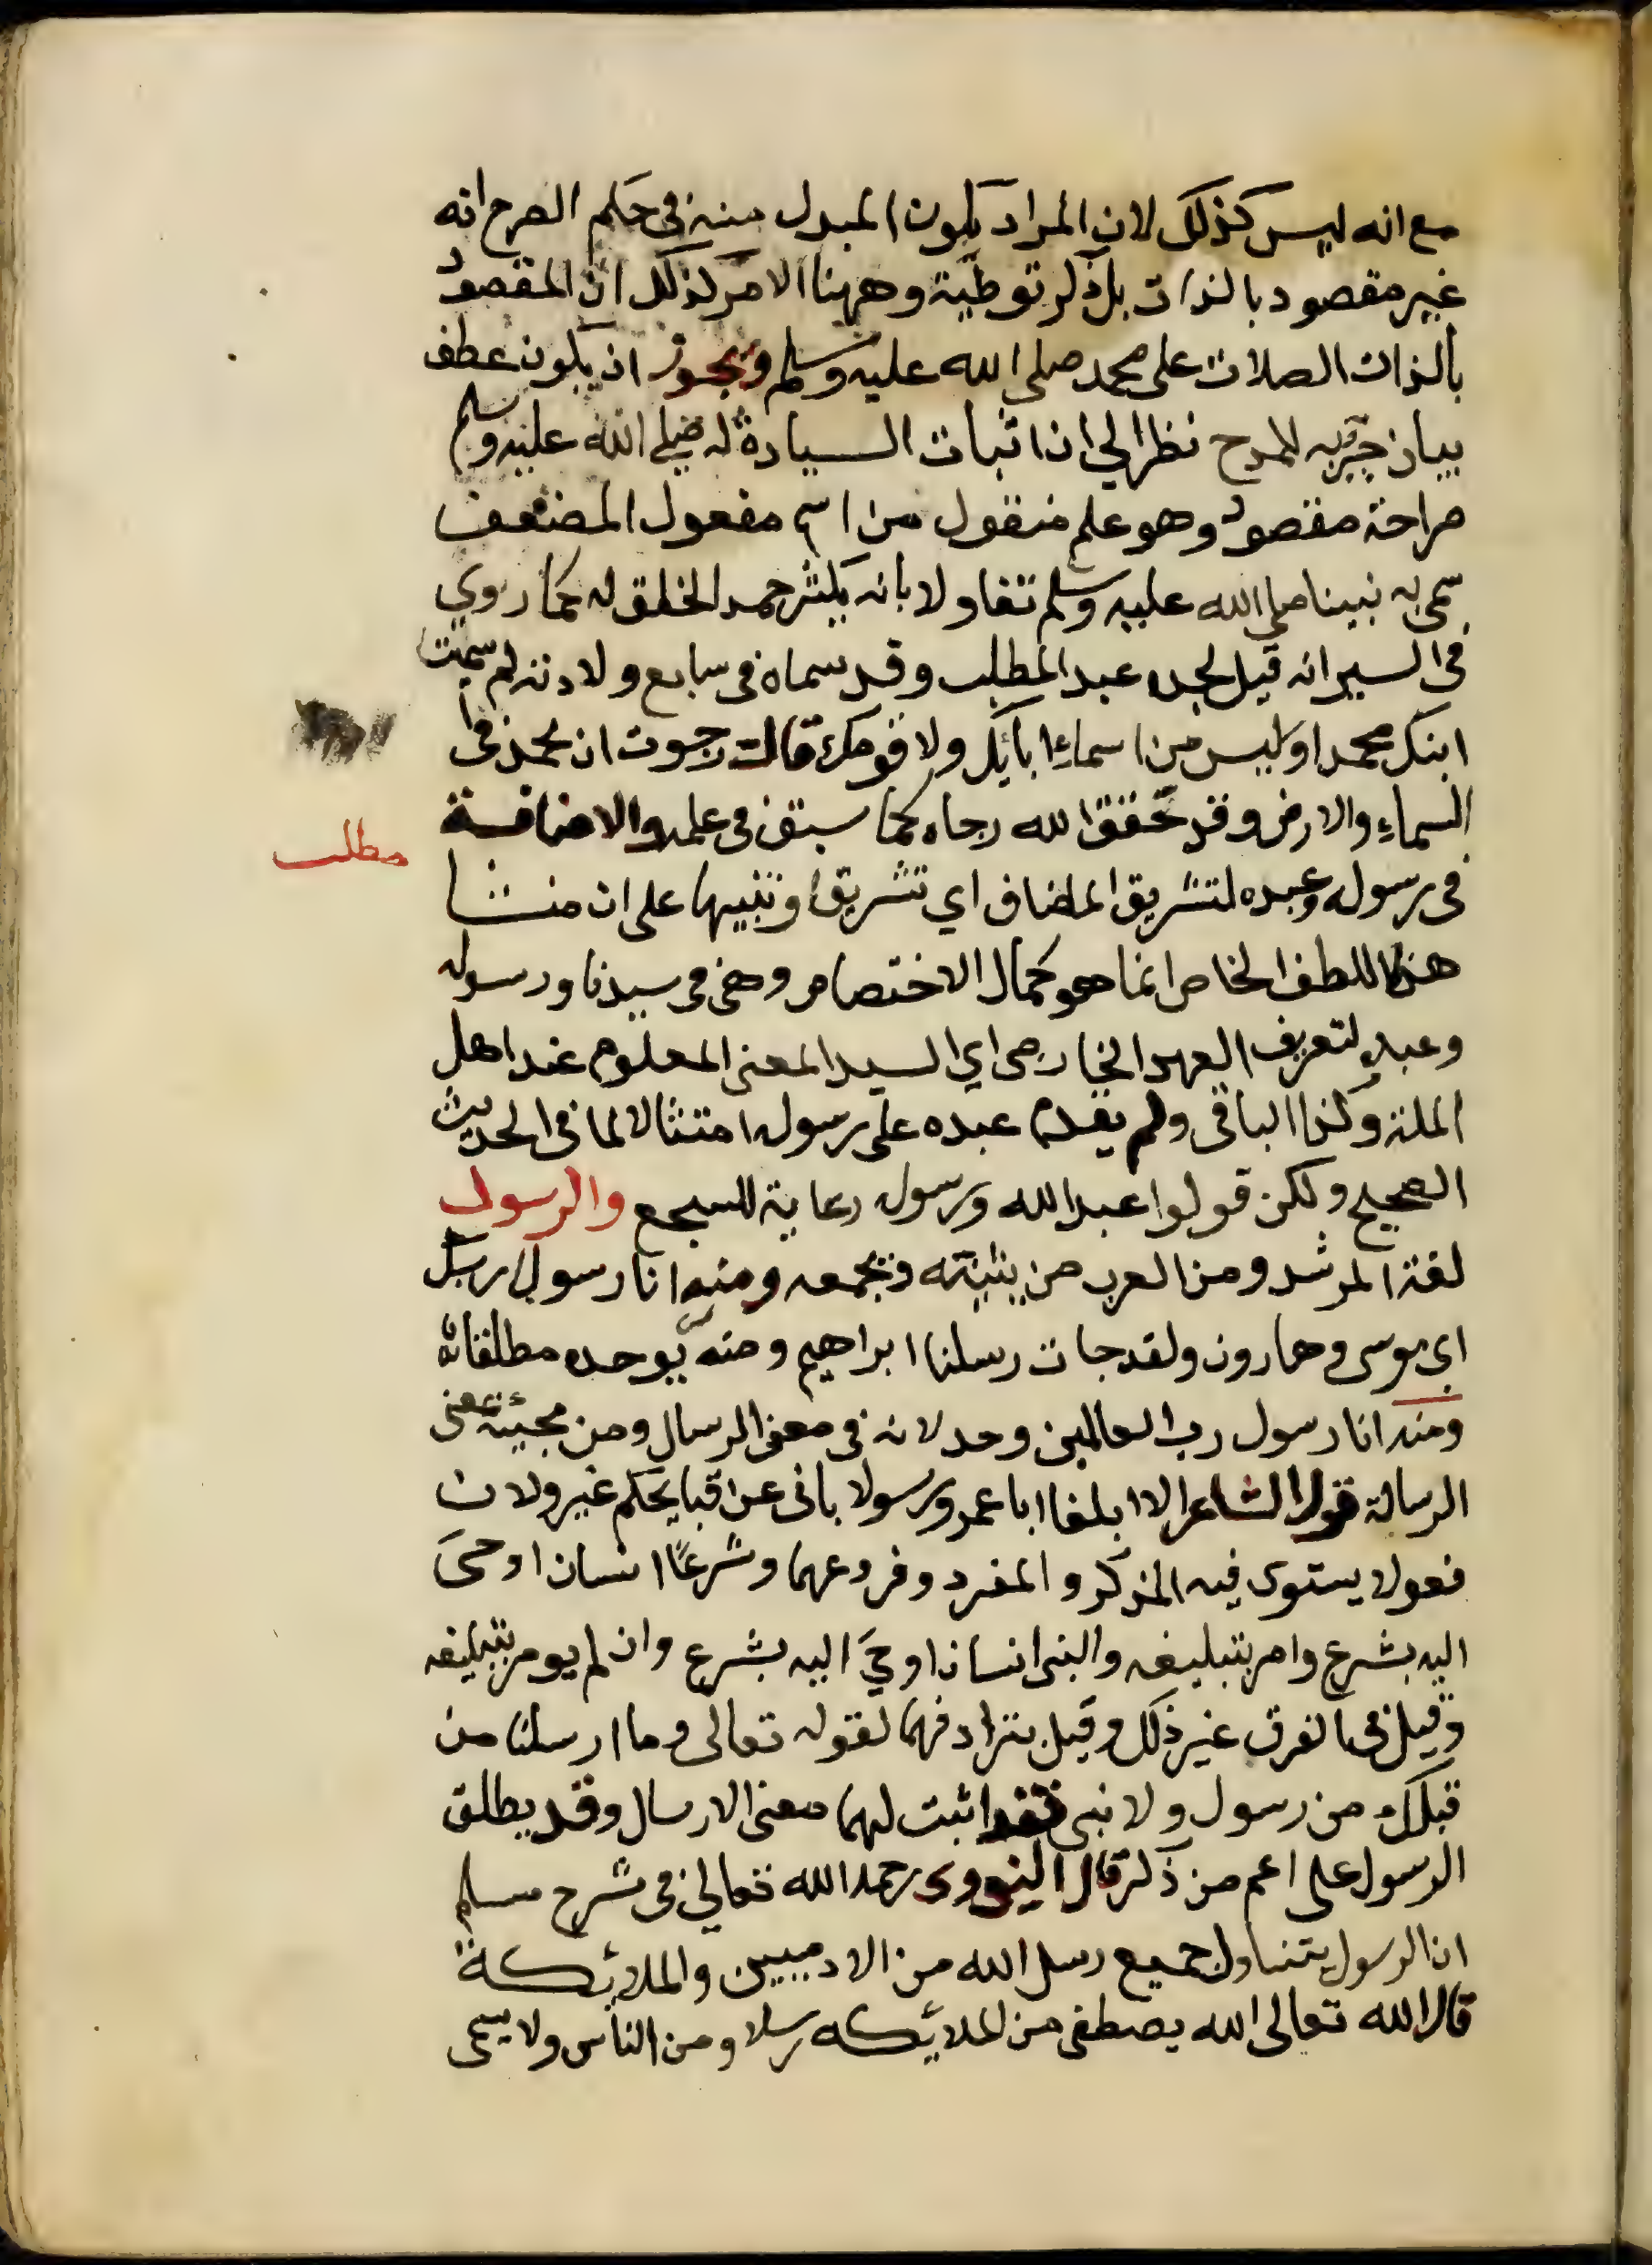 مع انه ليس كذلك لان المراد بكون المبدل منه في حكم الطرح انه
غير مقصود بالذات بل ذكر توطية وههنا الامر كذلك ان المقصود
بالذات الصلات على محمد صلى الله عليه وسلم ويجوز ان يكون عطف
بيان جئ به للمدح نظرا الي ان اثبات السيادة له صلى الله عليه وسلم
صراحة مقصود وهو علم منقول من اسم مفعول المضعف
سمى به نبينا صلى الله عليه وسلم تفاولا بانه يكثر حمد الخلق له كما روي
في السير انه قيل لجده عبد المطلب وقد سماه في سابع ولادته لم سميت
ابنك محمدا وليس من اسماء ابائك ولا قومك قال رجوت ان يحمد في
السماء والارض وقد حقق الله رجاه كما سبق في علمه والاضافة
مطلب
في رسوله وعبده لتشريق المضاف اي تشريفا وتنبيها على ان منشا
هذا اللطف الخاص انما هو كمال الاختصاص وهي في سيدنا ورسوله
وعبده لتعريف العهد الخارجى اي السيد المعنى المعلوم عند اهل
الملة وكذا الباقى ولم يقدم عبده على رسوله امتثالا لما في الحديث
الصحيح ولكن قولوا عبد الله ورسوله رعاية للسجع والرسول
لغة المرشد ومن العرب من يثنيه ويجمعه ومنه انا رسولا ربك
اي موسى وهارون ولقد جات رسلنا ابراهيم ومنه يوحده مطلقا
ومنه انا رسول رب العالمين وحد لانه في معنى الرسال ومن مجيئه بمعنى
الرسالة قول الشاعر الا ابلغا ابا عمرو رسولا بانى عن قبايحكم غير ولان
فعولا يستوى فيه المذكر والمفرد وفروعهما وشرعًا انسان اوحى
اليه بشرع وامر بتبليغه والنبى انسان اوحي اليه بشرع وان لم يومر بتبليغه
وقيل في الفرق غير ذلك وقيل بترادفهما لقوله تعالى وما ارسلنا من
قبلك من رسول ولا نبى فقد اثبت لهما معنى الارسال وقد يطلق
الرسول على اعم من ذلك قال النووى رحمه الله تعالي في شرح مسلم
ان الرسول يتناول جميع رسل الله من الادميين والملائكة
قال الله تعالى الله يصطفى من الملائكه رسلا ومن الناس ولا يسمى